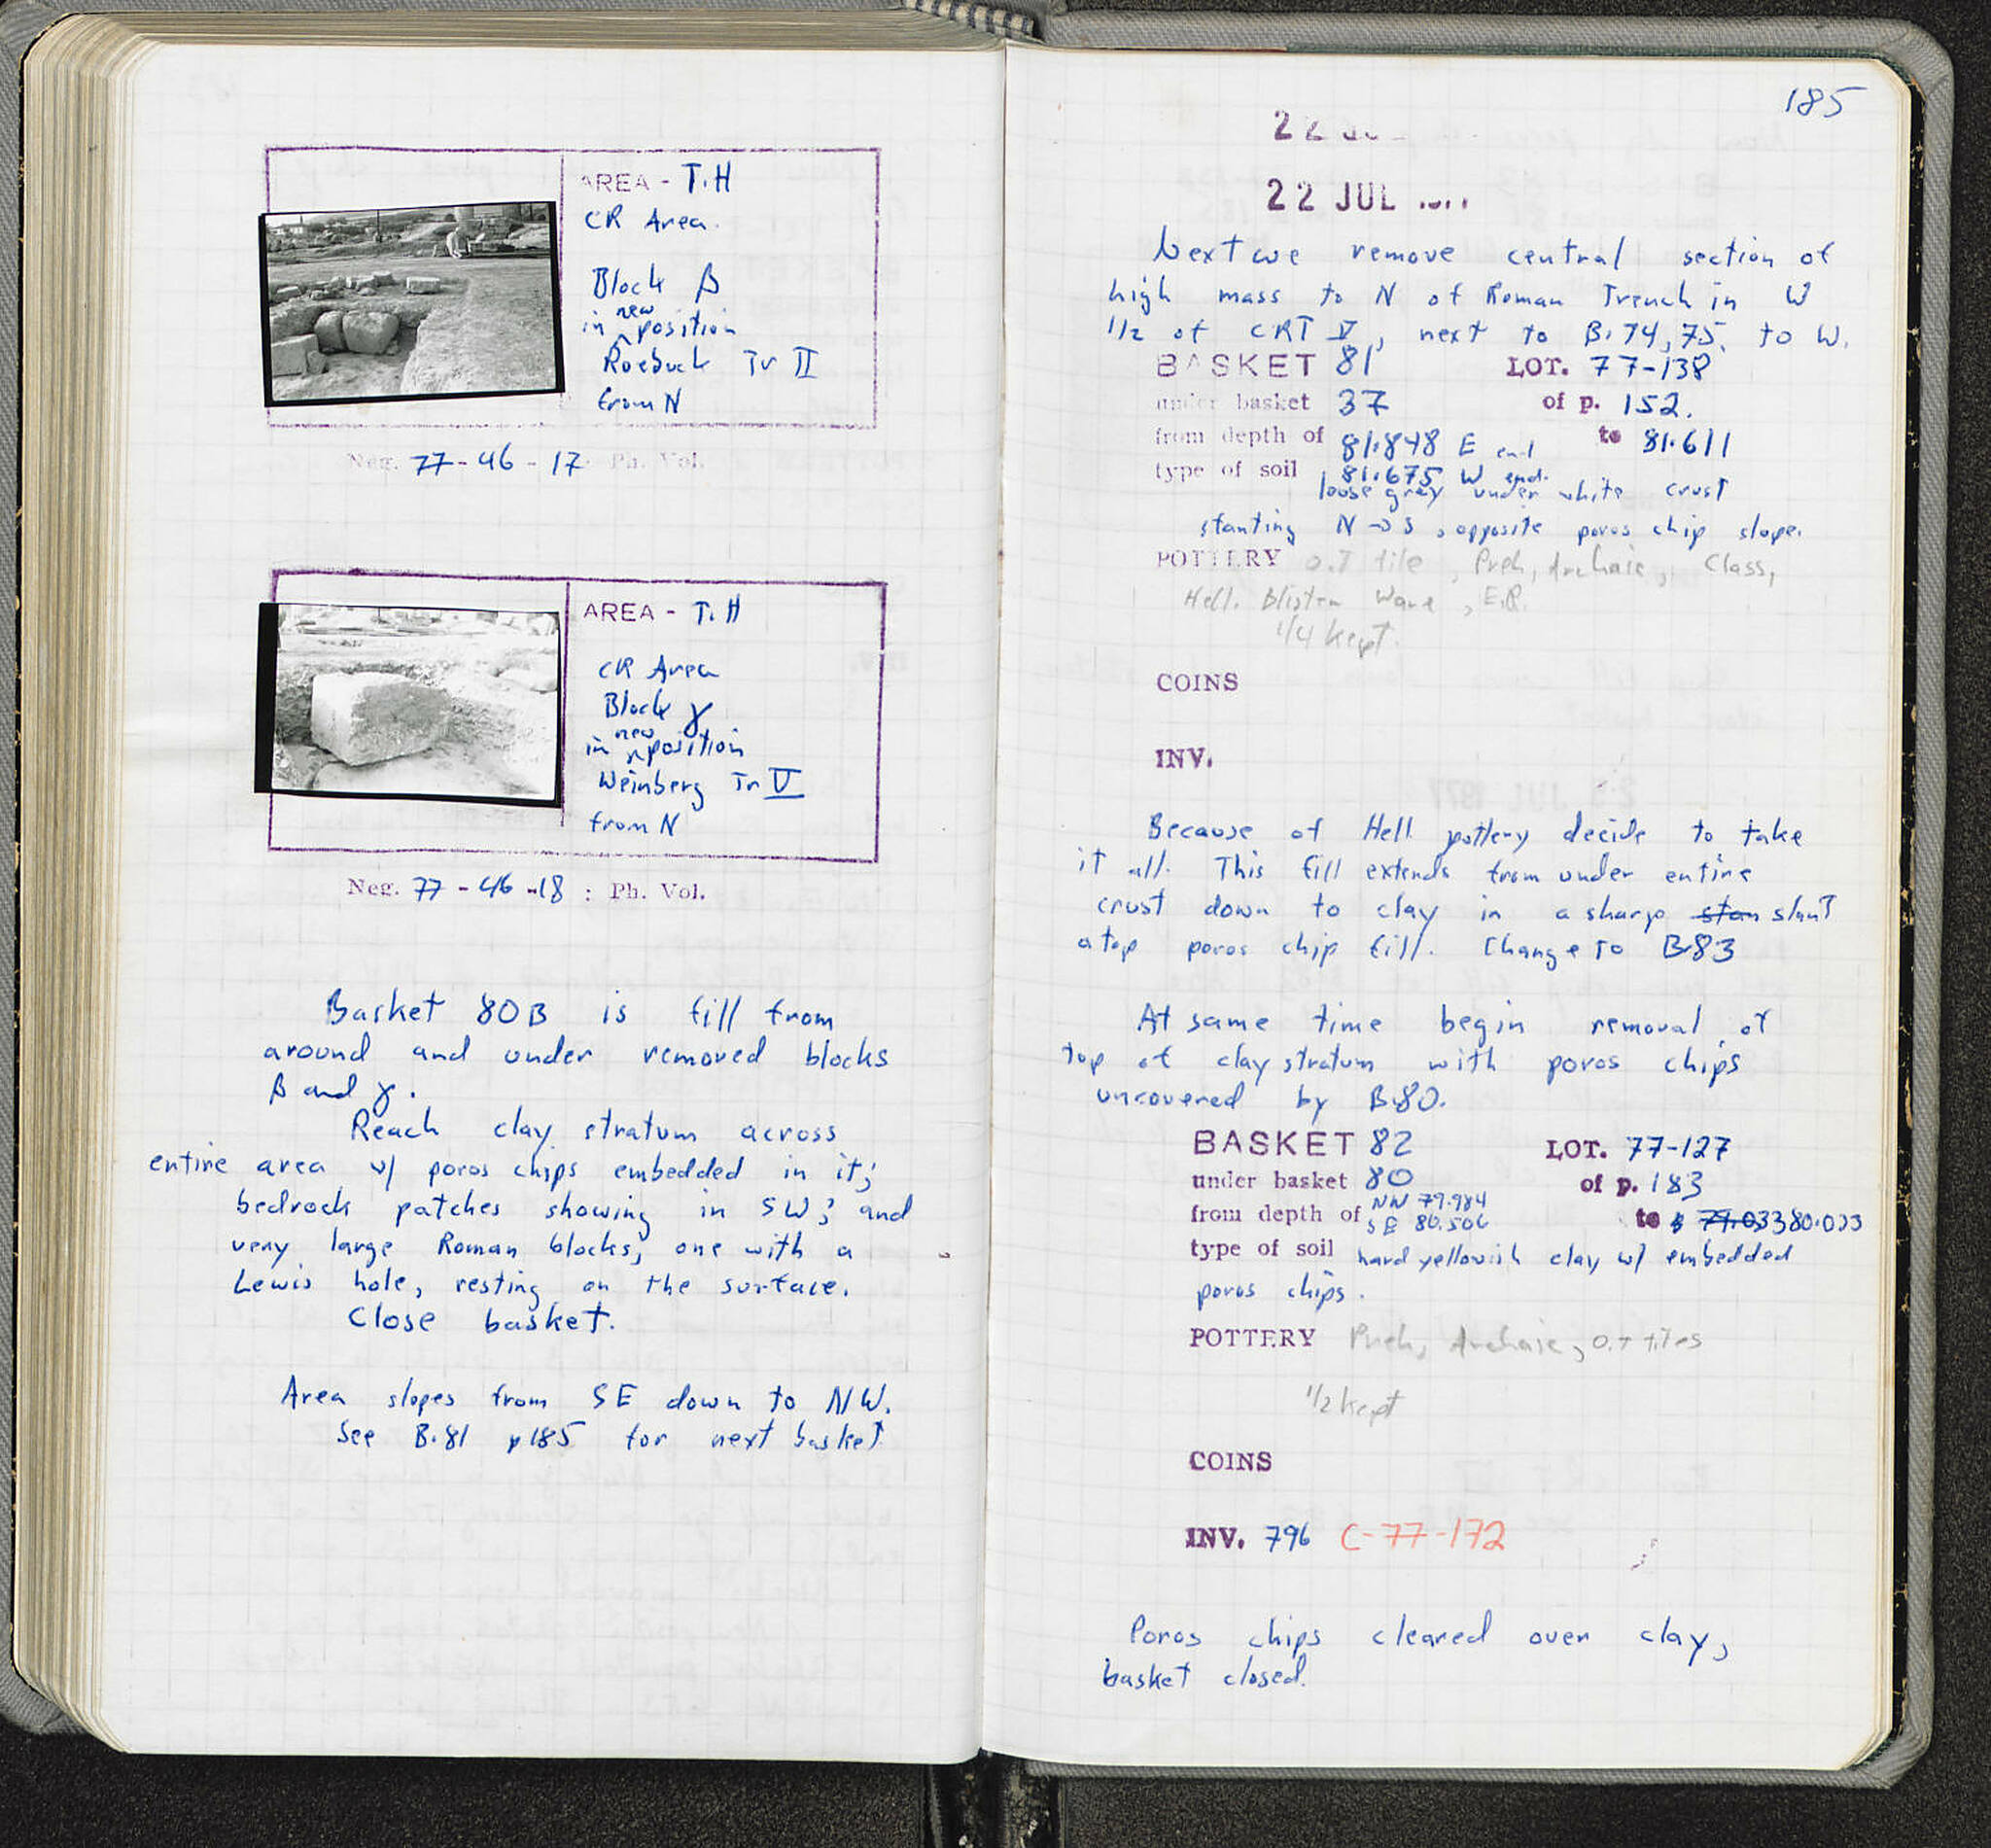 AREA - T.H
CR Area.
Block β
new
in ^ position
Roebuck Tr II
from N
Neg. 77-46-17 Ph. Vol.
AREA - T.H
CR Area
Block γ
new
in ^ position
Weinberg Tr V
from N
Neg. 77-46-18 : Ph. Vol.
Basket 80B is fill from
around and under removed blocks
β and γ.
Reach clay stratum across
entire area w/ poros chips embedded in it;
bedrock patches showing in SW; and
very large Roman blocks, one with a
Lewis hole, resting on the surface.
Close basket.
Area slopes from SE down to NW.
See B.81 p185 for next basket
185
22 JUL
Next we remove central section of
high mass to N of Roman Trench in W
1/2 of CRT V, next to B.74,75. to W.
BASKET 81 LOT. 77-138
under basket 37 of p. 152.
from depth of 81.848 E end to 81.611
81.675 W end.
type of soil loose grey under white crust
slanting N→S, opposite poros chip slope.
POTTERY 0.7 tile, Preh, Archaic, Class,
Hell. Blister Ware, E.R.
1/4 kept.
COINS
INV.
Because of Hell pottery decide to take
it all. This fill extends from under entire
crust down to clay in a sharp stan slant
atop poros chip fill. Change to B.83
At same time begin removal of
top of clay stratum with poros chips
uncovered by B.80.
BASKET 82 LOT. 77-127
under basket 80 of p. 183
from depth of NW 79.984
SE 80.506 to 79.033 80.033
type of soil hard yellowish clay w/ embedded
poros chips.
POTTERY Preh, Archaic, 0.7 tiles
1/2 kept
COINS
INV. 796 C-77-172
Poros chips cleared over clay,
basket closed.